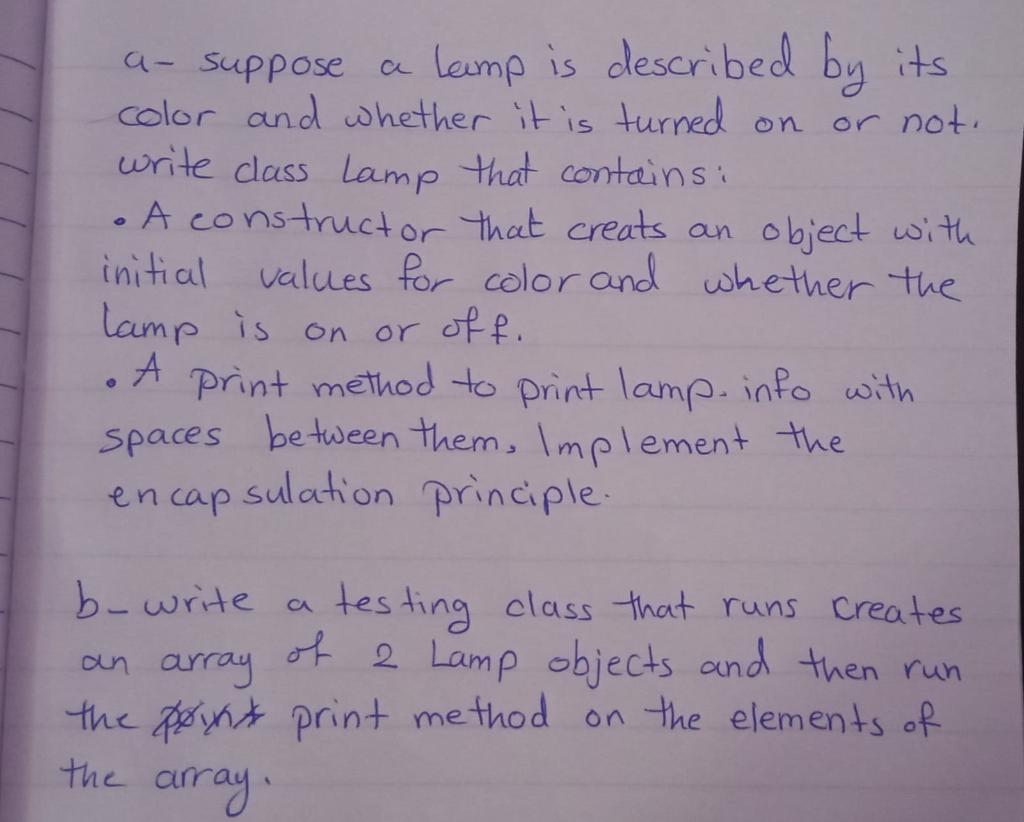 a- suppose a lamp is described by its
color and whether it is turned on or not.
write class Lamp that contains:
• A constructor that creats an object with
initial values for color and whether the
lamp is on or off.
• A print method to print lamp. info with
spaces between them, Implement the
encapsulation principle.
b- write a testing class that runs creates
an array of 2 Lamp objects and then run
the print method on the elements of
the array.